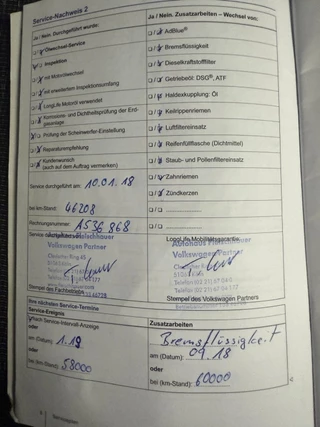 Service-Nachweis 2
Ja / Nein. Durchgeführt wurde:
Ölwechsel-Service
Inspektion
mit Motorölwechsel
mit erweitertem Inspektionsumfang
LongLife Motoröl verwendet
Korrosions- und Dichtheitsprüfung der Erdgasanlage
Prüfung der Scheinwerfer-Einstellung
Reparaturempfehlung
Kundenwunsch
(auch auf dem Auftrag vermerken)
Service durchgeführt am: 10.01.18
bei km-Stand: 46208
Rechnungsnummer: A536868
Volkswagen Partner
Stempel des Fachbetriebs
Ja / Nein. Zusatzarbeiten – Wechsel von:
AdBlue®
Bremsflüssigkeit
Dieselkraftstofffilter
Getriebeöl: DSG®, ATF
Haldexkupplung: Öl
Keilrippenriemen
Luftfiltereinsatz
Reifenfüllflasche (Dichtmittel)
Staub- und Pollenfiltereinsatz
Zahnriemen
Zündkerzen
LongLife Mobilitätsgarantie
Autohaus Fleischhauer
Volkswagen Partner
Stempel des Volkswagen Partners
Ihre nächsten Service-Termine
Service-Ereignis
nach Service-Intervall-Anzeige
oder
am (Datum): 1.19
oder
bei (km-Stand): 58000
Zusatzarbeiten
Bremsflüssigkeit
am (Datum): 09.18
oder
bei (km-Stand): 60000